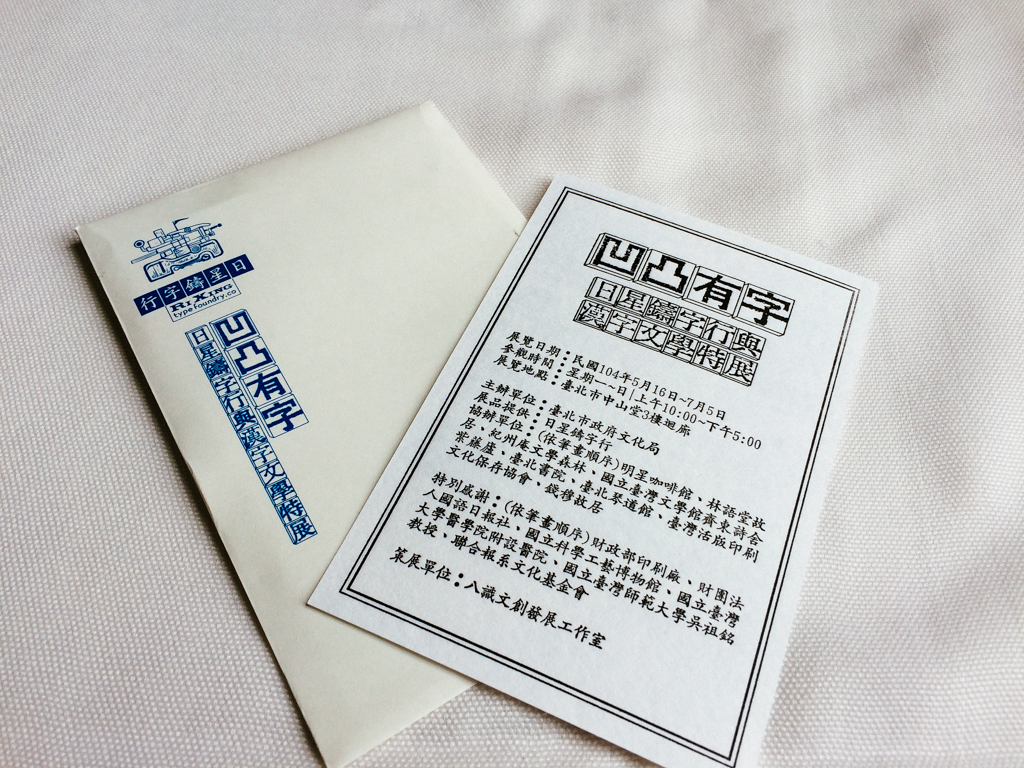 行字鑄星日
RI XING
typefoundry.co
凹凸有字
日星鑄字行與漢字文學特展
凹凸有字
日星鑄字行與
漢字文學特展
展覽日期：民國104年5月16日~7月5日
參觀時間：星期一~日|上午10:00~下午5:00
展覽地點：臺北市中山堂3樓迴廊
主辦單位：臺北市政府文化局
展品提供：日星鑄字行
協辦單位：(依筆畫順序)明星咖啡館、林語堂故
居、紀州庵文學森林、國立臺灣文學館齊東詩舍
紫藤廬、臺北書院、臺北琴道館、臺灣活版印刷
文化保存協會、錢穆故居
特別感謝：(依筆畫順序)財政部印刷廠、財團法
人國語日報社、國立科學工藝博物館、國立臺灣
大學醫學院附設醫院、國立臺灣師範大學吳祖銘
教授、聯合報系文化基金會
策展單位：八識文創發展工作室